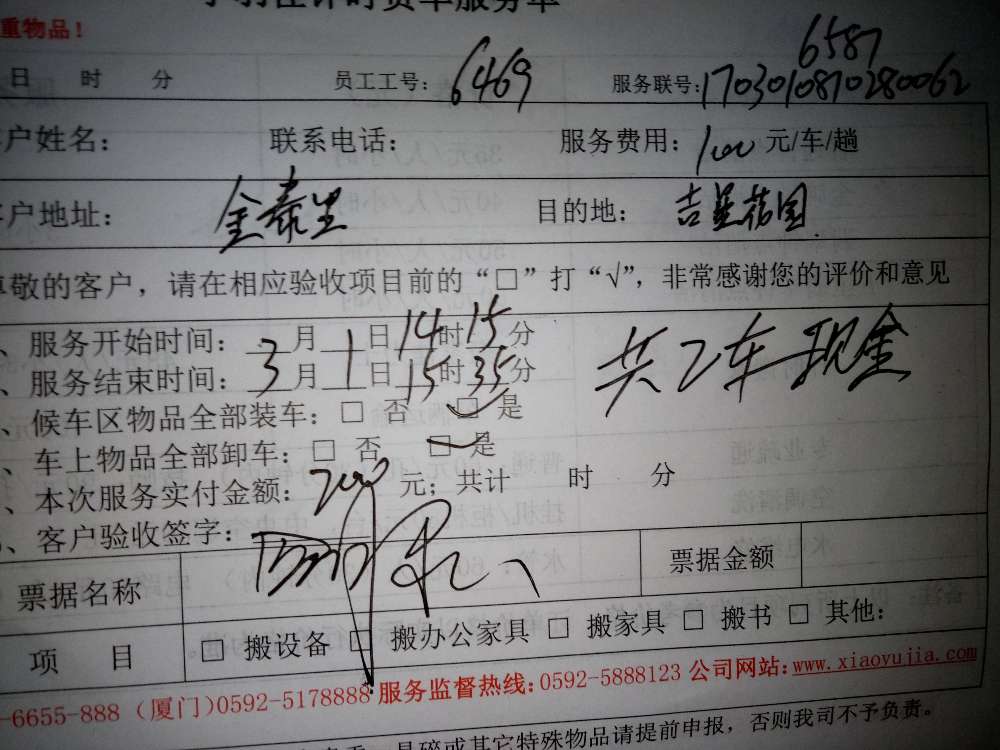 重物品！
日 时 分 员工工号：6469 服务联号：17030108710280062
6587
户姓名： 联系电话： 服务费用：100 元/车/趟
户地址：金泰里 目的地：吉星花园
敬的客户，请在相应验收项目前的“□”打“√”，非常感谢您的评价和意见
、服务开始时间：3月1日14时15分
、服务结束时间：3月1日15时35分
共2车现金
、候车区物品全部装车：□ 否 ☑ 是
、车上物品全部卸车：□ 否 ☑ 是
、本次服务实付金额：200 元；共计 时 分
、客户验收签字：
票据名称 票据金额
项 目 □ 搬设备 □ 搬办公家具 □ 搬家具 □ 搬书 □ 其他：
-6655-888（厦门)0592-5178888 服务监督热线：0592-5888123 公司网站：www.xiaoyujia.com
易碎或其它特殊物品请提前申报，否则我司不予负责。